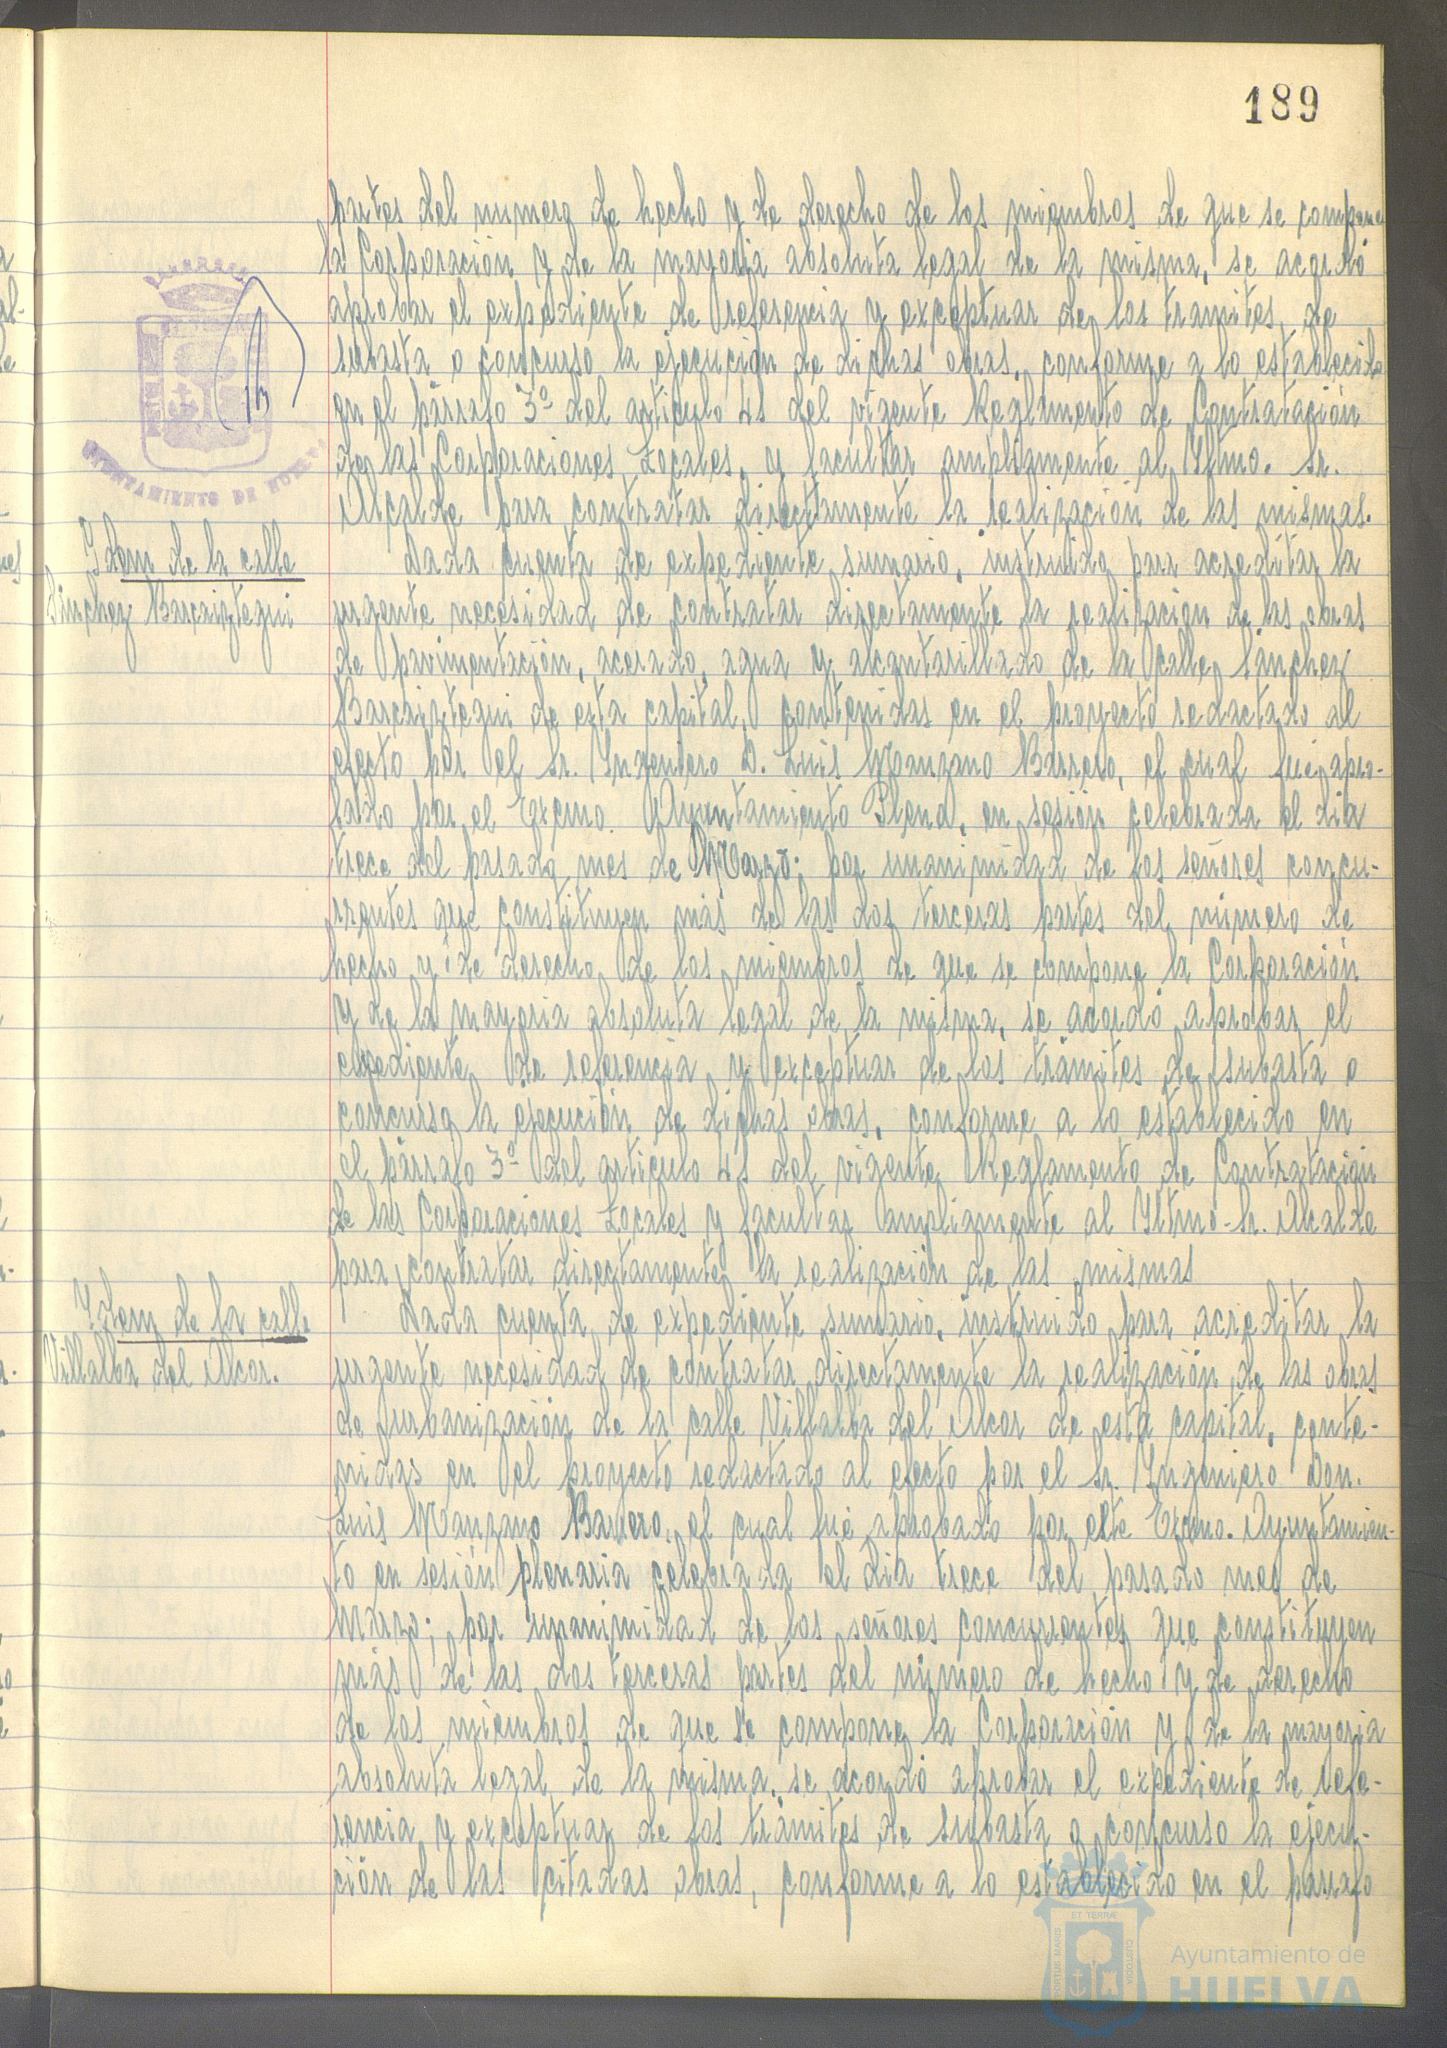 189
partes del numero de hecho y de derecho de los miembros de que se compone
la Corporación y de la mayoria absoluta legal de la misma, se acordó
aprobar el expediente de referencia y exceptuar de los tramites de
subasta o concurso la ejecución de dichas obras, conforme a lo establecido
en el párrafo 3º del articulo 41 del vigente Reglamento de Contratación
de las Corporaciones Locales, y facultar ampliamente al Iltmo. Sr.
Alcalde para contratar directamente la realización de las mismas.
AYUNTAMIENTO DE HUELVA
Idem de la calle
Sánchez Barcaiztegui
Dada cuenta de expediente sumario, instruido para acreditar la
urgente necesidad de contratar directamente la realización de las obras
de pavimentación, acerado, agua y alcantarillado de la calle Sánchez
Barcaiztegui de esta capital, contenidas en el proyecto redactado al
efecto por el Sr. Ingeniero D. Luis Manzano Barrero, el cual fué apro-
bado por el Excmo. Ayuntamiento Pleno, en sesión celebrada el dia
trece del pasado mes de Marzo; por unanimidad de los señores concu-
rrentes que constituyen más de las dos terceras partes del número de
hecho y de derecho de los miembros de que se compone la Corporación
y de la mayoria absoluta legal de la misma, se acordó aprobar el
expediente de referencia y exceptuar de los trámites de subasta o
concurso la ejecución de dichas obras, conforme a lo establecido en
el párrafo 3º del articulo 41 del vigente Reglamento de Contratación
de las Corporaciones Locales y facultar ampliamente al Iltmo. Sr. Alcalde
para contratar directamente la realización de las mismas
Idem de la calle
Villalba del Alcor.
Dada cuenta de expediente sumario, instruido para acreditar la
urgente necesidad de contratar directamente la realización de las obras
de urbanización de la calle Villalba del Alcor de esta capital, conte-
nidas en el proyecto redactado al efecto por el Sr. Ingeniero Don.
Luis Manzano Barrero, el cual fué aprobado por este Excmo. Ayuntamien-
to en sesión plenaria celebrada el dia trece del pasado mes de
Marzo; por unanimidad de los señores concurrentes que constituyen
más de las dos terceras partes del número de hecho y de derecho
de los miembros de que se compone la Corporación y de la mayoria
absoluta legal de la misma, se acordó aprobar el expediente de refe-
rencia y exceptuar de los trámites de subasta o concurso la ejecu-
ción de las citadas obras, conforme a lo establecido en el párrafo
PORTUS MARIS ET TERRÆ CUSTODIA
Ayuntamiento de
HUELVA